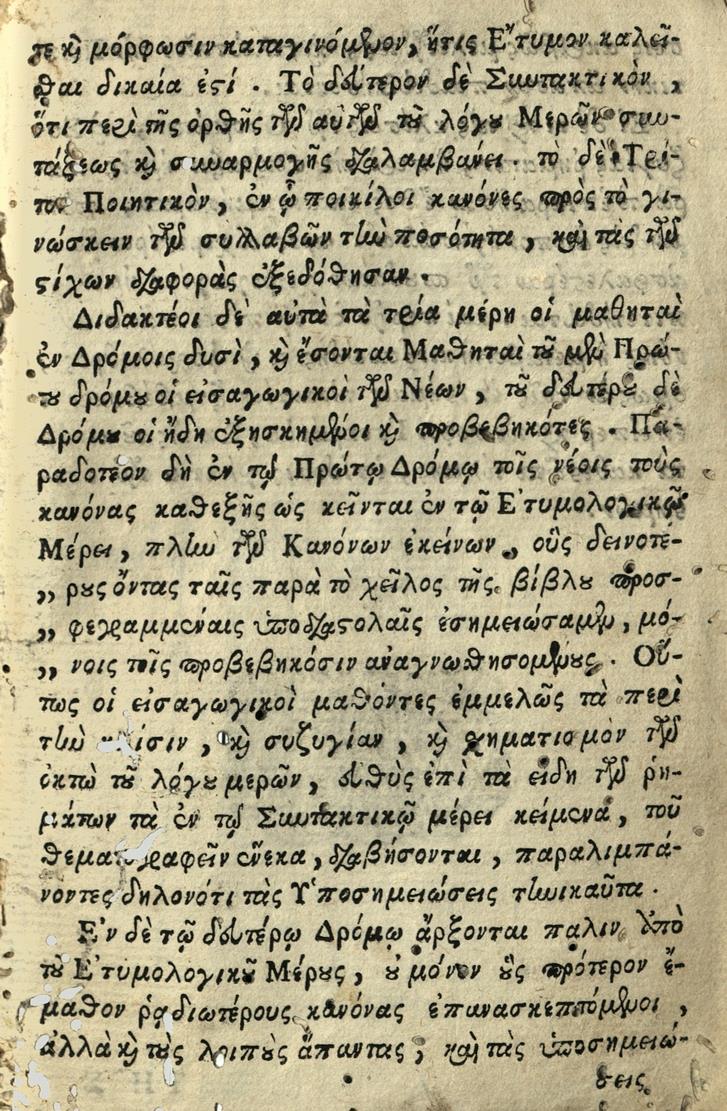 τε καὶ μόρφωσιν καταγινόμενον, ἥτις Ἔτυμον καλεῖ-
σθαι δικαία ἐστί . Τὸ δεύτερον δὲ Συντακτικὸν ,
ὅτι περὶ τῆς ὀρθῆς τῶν αὐτῶν τοῦ λόγου Μερῶν συν-
τάξεως καὶ συναρμογῆς διαλαμβάνει . τὸ δὲ Τρί-
τον Ποιητικὸν , ἐν ᾧ ποικίλοι κανόνες πρὸς τὸ γι-
νώσκειν τῶν συλλαβῶν τὴν ποσότητα , καὶ τὰς τῶν
στίχων διαφορὰς ἐξεδόθησαν .
Διδακτέοι δὲ αὐτὰ τὰ τρία μέρη οἱ μαθηταὶ
ἐν Δρόμοις δυσὶ , καὶ ἔσονται Μαθηταὶ τοῦ μὲν Πρώ-
του δρόμου οἱ εἰσαγωγικοὶ τῶν Νέων , τοῦ δευτέρου δὲ
Δρόμου οἱ ἤδη ἐξησκημένοι καὶ προβεβηκότες . Πα-
ραδοτέον δὴ ἐν τῷ Πρώτῳ Δρόμῳ τοῖς νέοις τοὺς
κανόνας καθεξῆς ὡς κεῖνται ἐν τῷ Ἐτυμολογικῷ
Μέρει , πλὴν τῶν Κανόνων ἐκείνων , οὓς δεινοτέ-
,, ρους ὄντας ταῖς παρὰ τὸ χεῖλος τῆς βίβλου προσ-
,, γεγραμμέναις ὑποδιαστολαῖς ἐσημειώσαμεν , μό-
,, νοις τοῖς προβεβηκόσιν ἀναγνωθησομένους . Οὕ-
τως οἱ εἰσαγωγικοὶ μαθόντες ἐμμελῶς τὰ περὶ
τὴν κλίσιν , καὶ συζυγίαν , καὶ χηματισμὸν τῶν
ὀκτὼ τοῦ λόγου μερῶν , εὐθὺς ἐπὶ τὰ εἴδη τῶν ῥη-
μάτων τὰ ἐν τῷ Συντακτικῷ μέρει κείμενα , τοῦ
θεματογραφεῖν ἕνεκα , διαβήσονται , παραλιμπά-
νοντες δηλονότι τὰς Ὑποσημειώσεις τηνικαῦτα .
Ἐν δὲ τῷ δευτέρῳ Δρόμῳ ἄρξονται παλιν ἀπὸ
τοῦ Ἐτυμολογικοῦ Μέρους , οὐ μόνον οὓς πρότερον ἔ-
μαθον ῥαδιωτέρους κανόνας ἐπανασκεπτόμενοι ,
ἀλλὰ καὶ τοὺς λοιποὺς ἅπαντας , καὶ τὰς ὑποσημειώ-
σεις